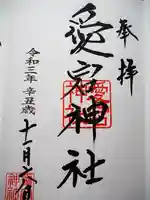 奉拝
愛宕神社
令和三年 辛丑歳
十一月六日